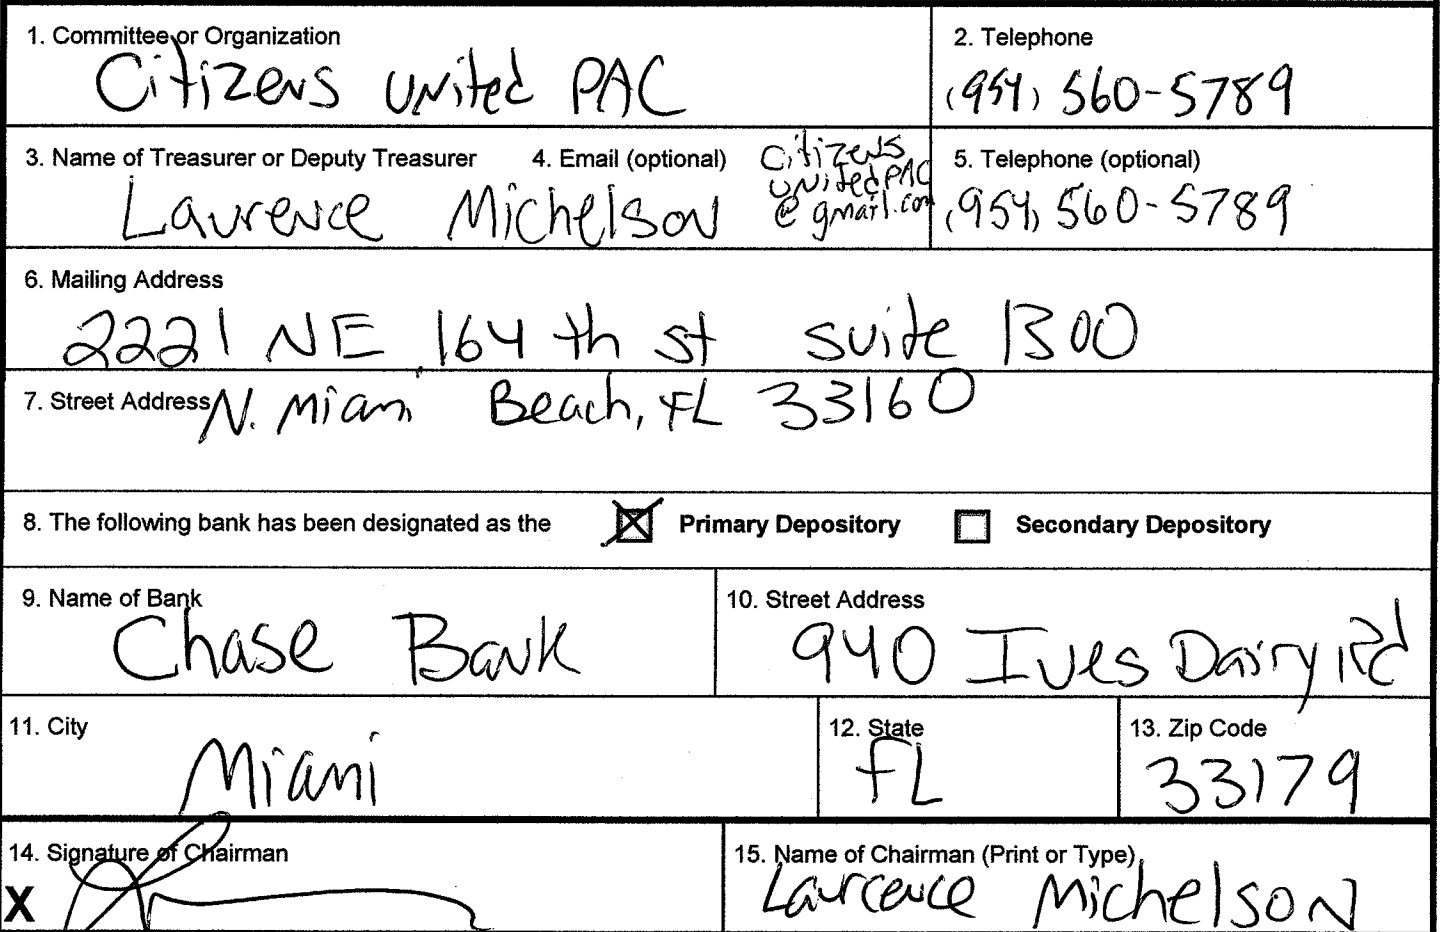 1. Committee or Organization
Citizens United PAC
2. Telephone
(954) 560-5789
3. Name of Treasurer or Deputy Treasurer
Laurence Michelson
4. Email (optional)
Citizens
UnitedPAC
@gmail.com
5. Telephone (optional)
(954) 560-5789
6. Mailing Address
2221 NE 164 th st suite 1300
7. Street Address N. Miami Beach, FL 33160
8. The following bank has been designated as the Primary Depository Secondary Depository
9. Name of Bank
Chase Bank
10. Street Address
940 Ives Dairy Rd
11. City
Miami
12. State
FL
13. Zip Code
33179
14. Signature of Chairman
X
15. Name of Chairman (Print or Type)
Laurence Michelson